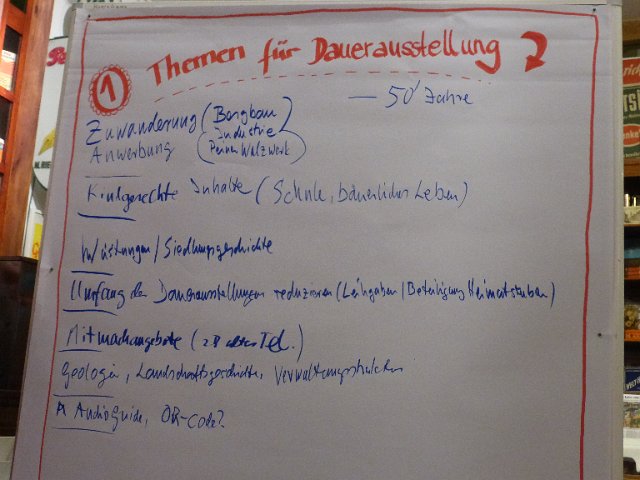 ① Themen für Dauerausstellung
— 50' Jahre
Zuwanderung (Bergbau
Industrie
Anwerbung Peiner Walzwerk)
Kindgerechte Inhalte (Schule, bäuerliches Leben)
Wüstungen / Siedlungsgeschichte
Umfang der Dauerausstellungen reduzieren (Leihgaben / Beteiligung Heimatstuben)
Mitmachangebote (zB altes Tel.)
Geologie, Landschaftsgeschichte, Verwaltungsstruktur
A Audioguide, QR-Code?